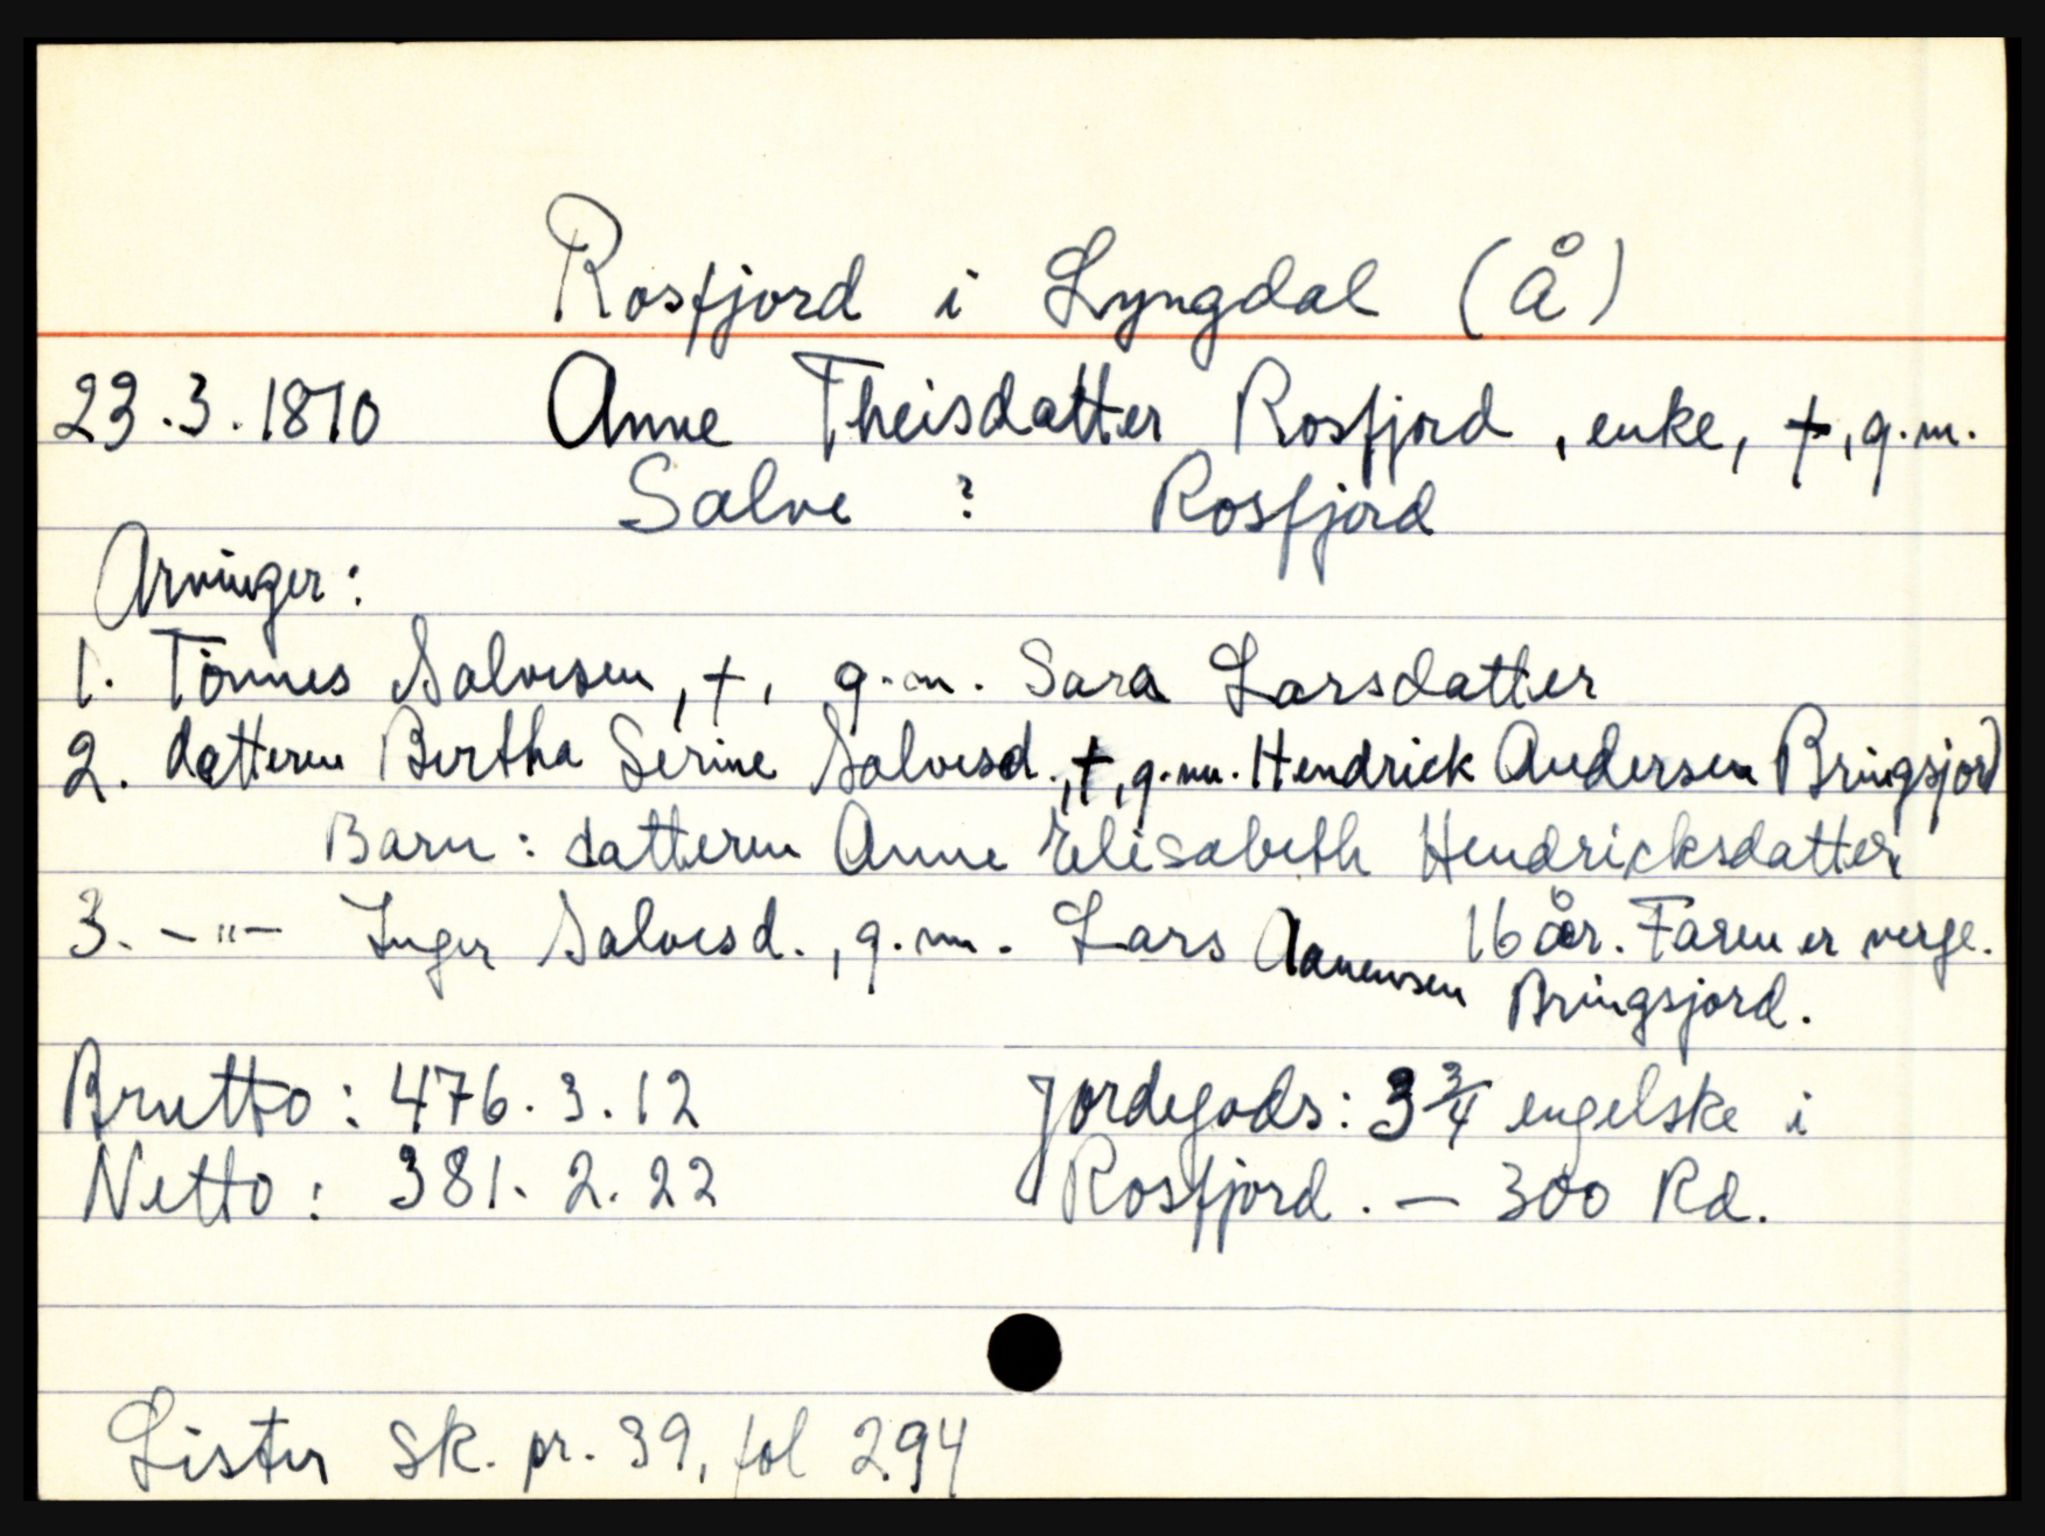 Rosfjord i Lyngdal (Å)
23.3.1810 Anne Theisdatter Rosfjord, enke, †, g.m.
Salve ? Rosfjord
Arvinger:
1. Tönnes Salvesen, †, g.m. Sara Larsdatter
2. datteren Bertha Serine Salvesd., †, g.m. Hendrick Andersen Bringsjord
Barn: datteren Anne Elisabeth Hendricksdatter,
16 år. Faren er verge.
3. -"- Inger Salvesd., g.m. Lars Aanensen
Bringsjord.
Brutto: 476.3.12 Jordegods: 3 3/4 engelske i
Netto: 381.2.22 Rosfjord. — 300 Rd.
Lister sk. pr. 39, fol 294